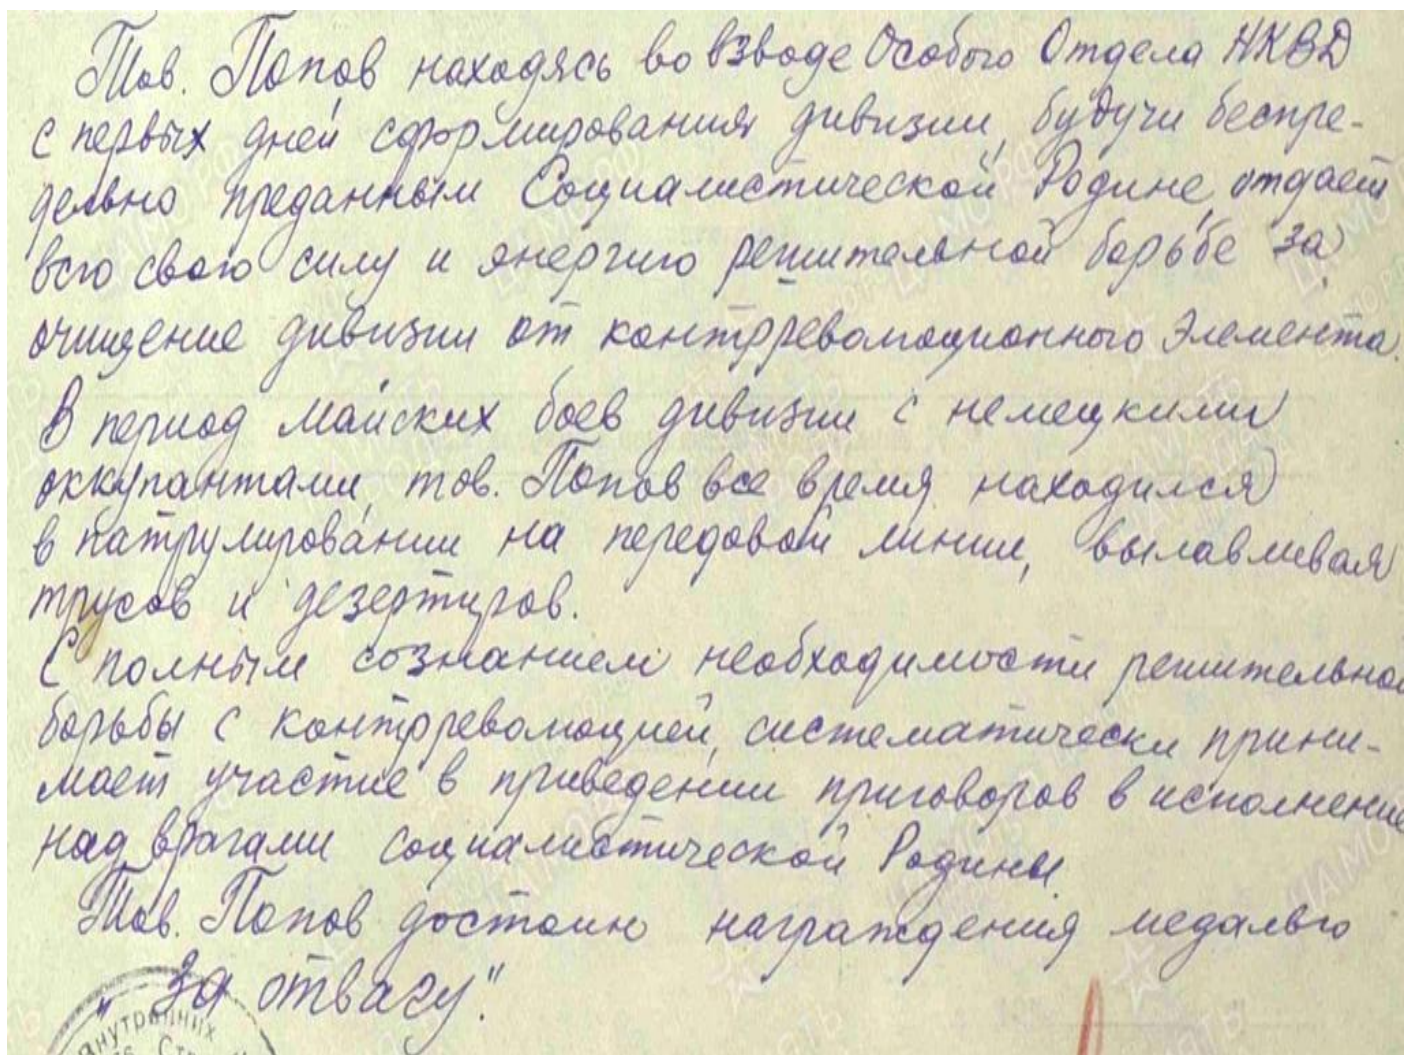 Тов. Попов находясь во взводе Особого Отдела НКВД
с первых дней сформирования дивизии, будучи беспре-
дельно преданным Социалистической Родине, отдает
всю свою силу и энергию решительной борьбе за
очищение дивизии от контрреволюционного элемента.
В период майских боев дивизии с немецкими
оккупантами, тов. Попов все время находился
в патрулировании на передовой линии, вылавливая
трусов и дезертиров.
С полным сознанием необходимости решительной
борьбы с контрреволюцией, систематически прини-
мает участие в приведении приговоров в исполнение
над врагами социалистической Родины.
Тов. Попов достоин награждения медалью
„За отвагу".
внутренних